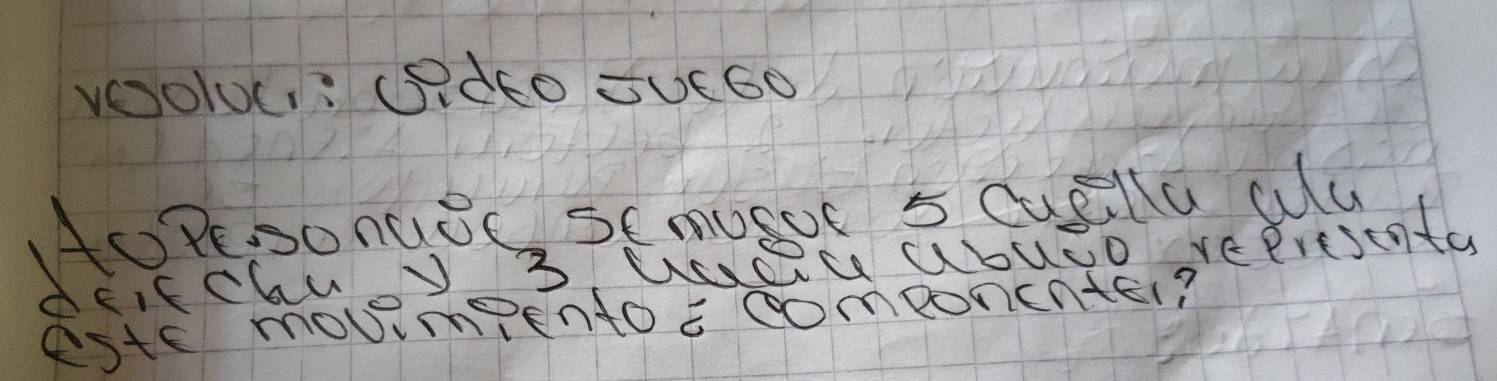 resolver: video JUEGO
tu Personaje se mueve 5 casilla a la
derecha y 3 hacia abajo representa
este movimiento = componentes?